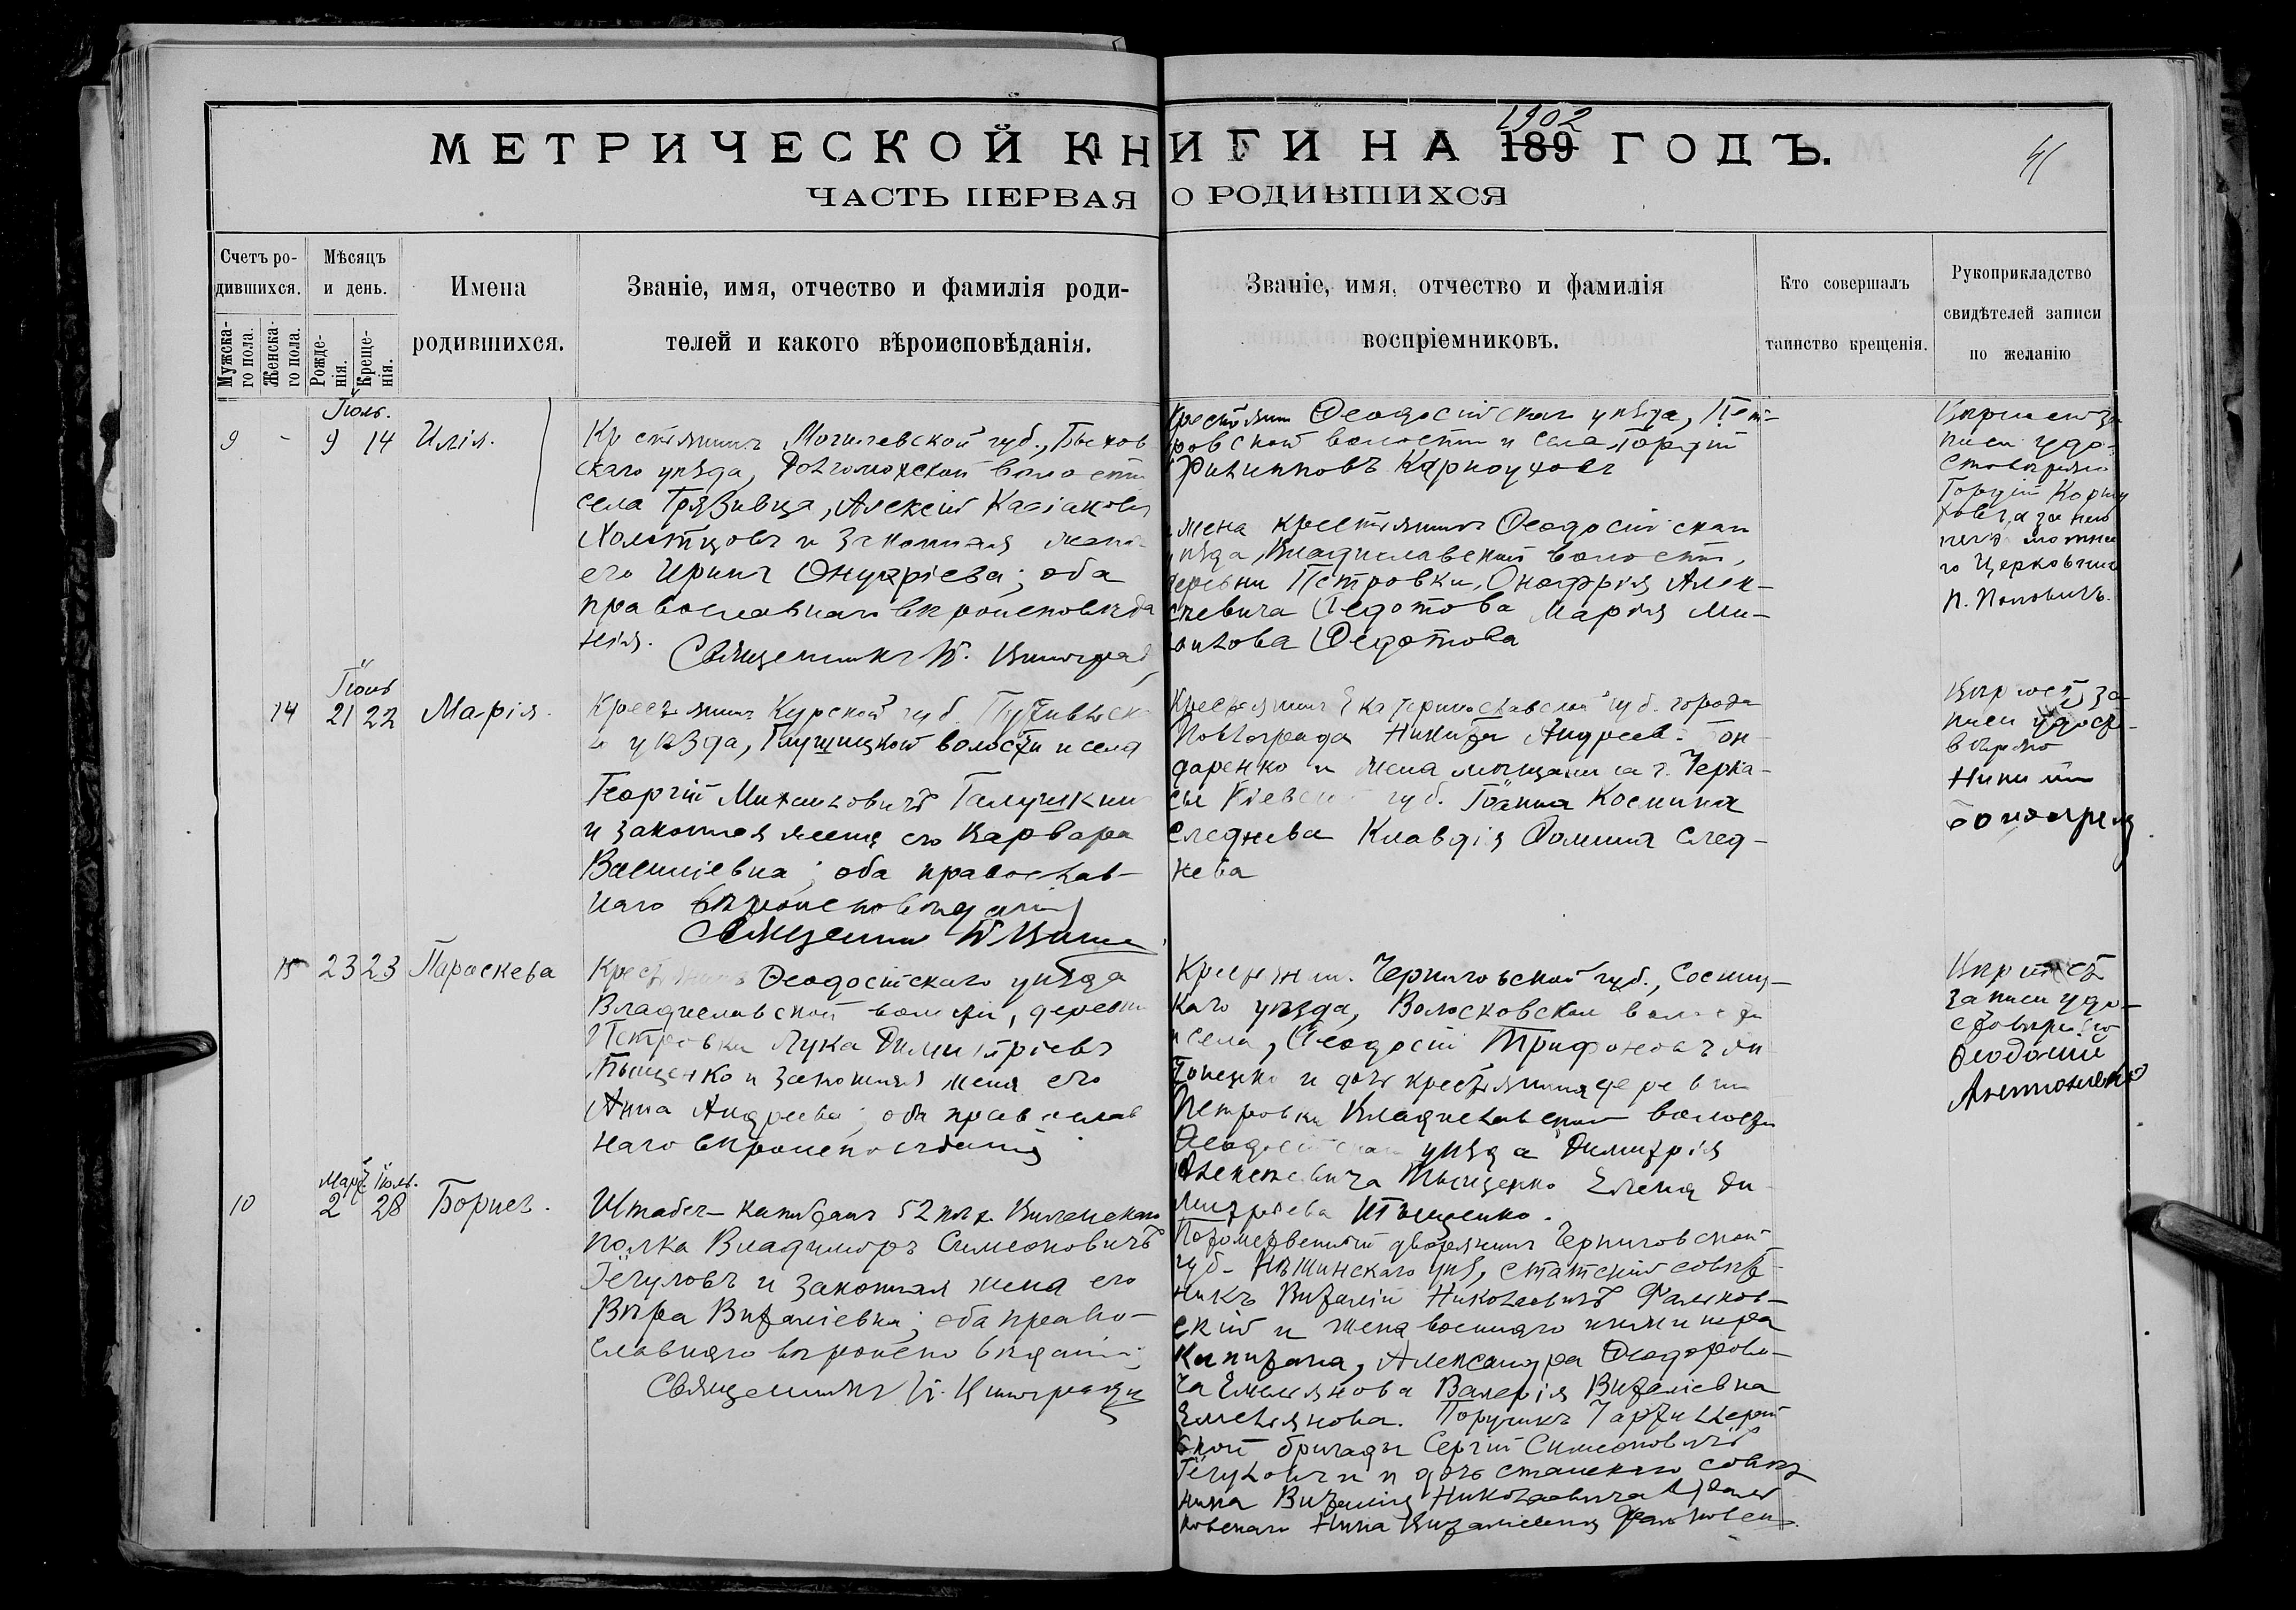 1902
МЕТРИЧЕСКОЙ КНИГИ НА 189 ГОДЪ.
ЧАСТЬ ПЕРВАЯ О РОДИВШИХСЯ
41
Счетъ ро-
дившихся.
Мужска-
го пола.
Женска-
го пола.
Мѣсяцъ
и день.
Рожде-
нія.
Креще-
нія.
Имена
родившихся.
Званіе, имя, отчество и фамилія роди-
телей и какого вѣроисповѣданія.
Званіе, имя, отчество и фамилія
воспріемниковъ.
Кто совершалъ
таинство крещенія.
Рукоприкладство
свидѣтелей записи
по желанію
Іюль.
9 - 9 14 Илія.
Крестьянинъ Могилевской губ., Быхов
скаго уѣзда, Долгомохской волости
села Грязивца, Алексій Касіановъ
и законная жена
его Ирина Онуфріева; оба
православнаго вѣроисповѣда
нія.
Священникъ В. Виноград
Крестьянинъ Ѳеодосійскаго уѣзда, Пет-
ровской волости и села Гордій
Филипповъ Карноуховъ
жена крестьянина Ѳеодосійскаго
уѣзда, Владиславской волости,
деревни Петровки, Онофрія Алек-
сѣевича Ѳедотова Марія Ми-
Ѳедотова
Вѣрность за
писи удо-
стовѣряю
Гордій Карноу
ховъ, а за него
го Церковник
П. Поповичъ.
Іюль
14 21 22 Марія.
Крестьянинъ Курской губ. Путивльска
го уѣзда, Глушицкой волости и села
Георгій Михаиловичъ Галушкинъ
и законная жена его Варвара
Василіевна; оба православ-
наго вѣроисповѣданія
Священник В Вино
Крестьянинъ Екатеринославской губ. города
Павлограда Никита Андреев. Бон-
даренко и жена мѣщанина г. Черка-
сы Кіевской губ. Іоанна Космина
Следнева Клавдія Фомина След-
нева
Вѣрность за
писи удосто-
вѣряю
Никита
Бондаренко
15 23 23 Параскева
Крестьянинъ Ѳеодосійскаго уѣзда
Владиславской волости, деревни
Петровки Лука Димитріевъ
Тыщенко и законная жена его
Анна Андреева; оба православ
наго вѣроисповѣданія
Крестьянин. Черниговской губ., Сосниц-
каго уѣзда, Волосковской волости
и села, Ѳеодосій Трифоновъ Ан
тоненко и дочь крестьянина деревни
Петровки Владиславской волости
Ѳеодосійскаго уѣзда Димитрія
Алексѣевича Тыщенко Елена Ди-
митріева Тыщенко.
Вѣрность
записи удо-
стовѣряю
Ѳеодосій
Антоненко
Март. Іюль.
10 2 28 Борисъ.
Штабсъ-капитанъ 52 пѣх. Виленскаго
полка Владиміръ Симеоновичъ
Гечуловъ и законная жена его
Вѣра Виталіевна; оба право-
славнаго вѣроисповѣданія;
Священникъ В. Виноградъ
Потомственный дворянинъ Черниговской
губ. Нѣжинскаго уѣз, статскій совѣт-
никъ Виталій Николаевичъ Фальков-
скій и жена военнаго инженера
Капитана, Александра Ѳеодорови-
ча Емельянова Валерія Виталіевна
Емельянова. Поручикъ 7 артиллерій
ской бригады Сергій Симеоновичъ
Гечуловъ и дочь статскаго совѣт
ника Виталія Николаевича Фаль
ковскаго Нина Виталіевна Фальковск